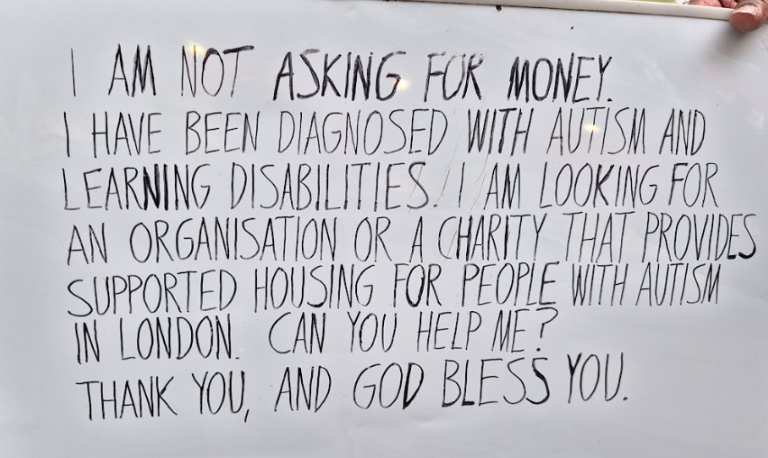 I AM NOT ASKING FOR MONEY.
I HAVE BEEN DIAGNOSED WITH AUTISM AND
LEARNING DISABILITIES. I AM LOOKING FOR
AN ORGANISATION OR A CHARITY THAT PROVIDES
SUPPORTED HOUSING FOR PEOPLE WITH AUTISM
IN LONDON. CAN YOU HELP ME?
THANK YOU, AND GOD BLESS YOU.